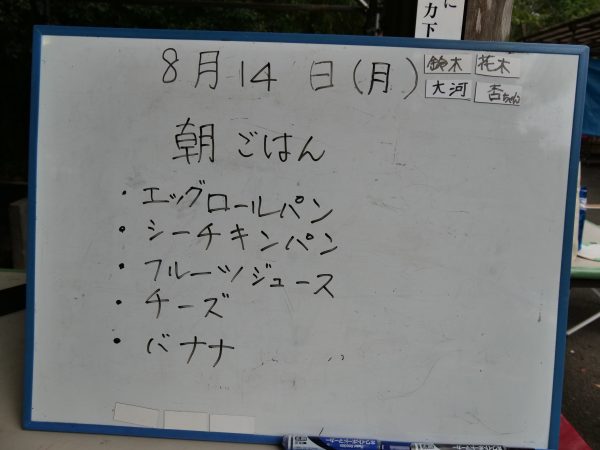 に
力下
8月14日(月)
鈴木 花木
大河 杏ちゃん
朝ごはん
・エッグロールパン
・シーチキンパン
・フルーツジュース
・チーズ
・バナナ
ホワイトボードマーカー